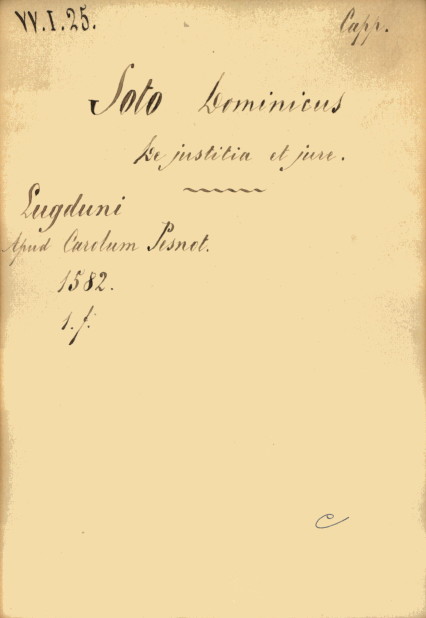 VV.I.25.
Capp.
Soto Dominicus
De justitia et jure.
Lugduni
Apud Carolum Pesnot.
1582.
1. f.
C